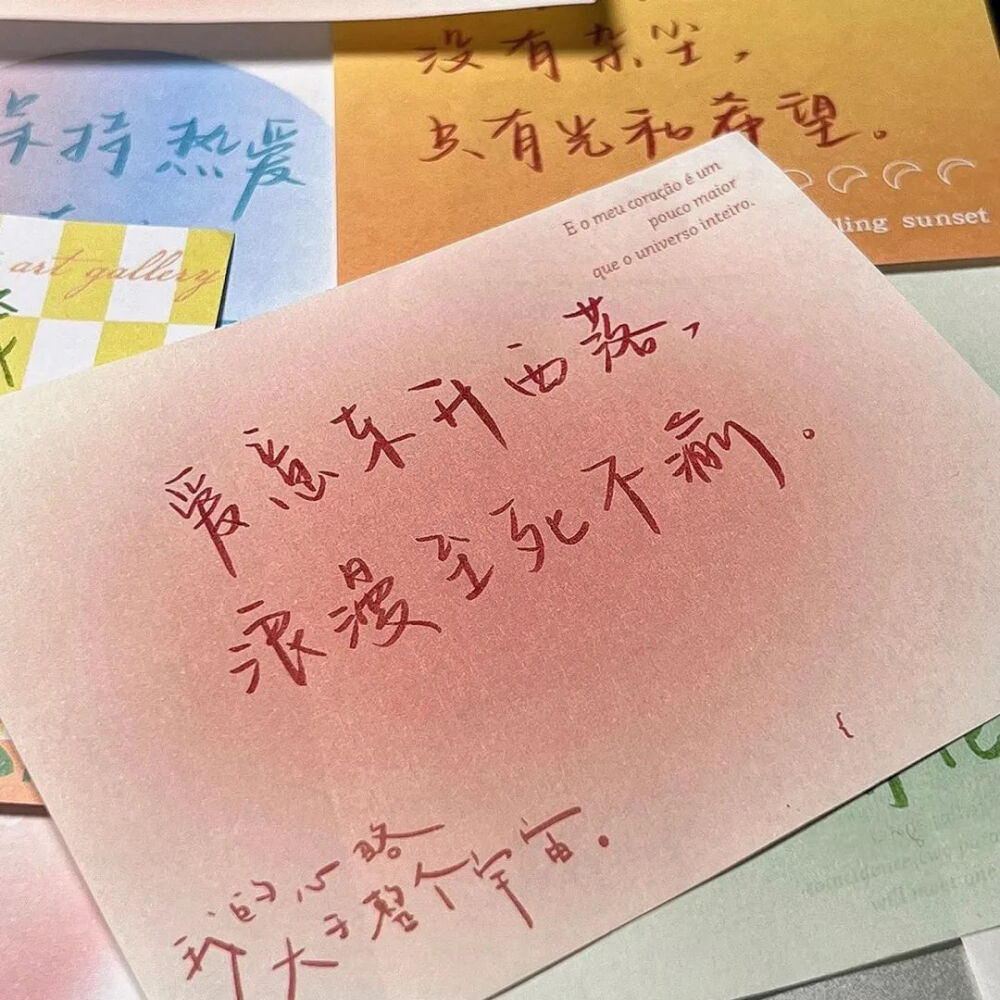 没有杂尘，
只有光和希望。
ling sunset
保持热爱
art gallery
E o meu coração é um
pouco maior
que o universo inteiro.
爱意东升西落，
浪漫至死不渝。
我的心略
大于整个宇宙。